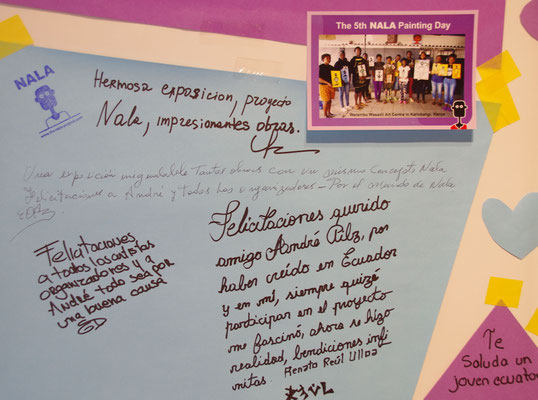 The 5th NALA Painting Day
NALA
Hermosa exposicion, proyecto
Nala, impresionantes obras.
Una exposición inigualable Tantas obras con un mismo Concepto Nala
Felicitaciones a André y todos los organizadores – Por el mundo de Nala
Felicitaciones
a todos los artistas
organizadores y a
André todo sea por
una buena causa
Felicitaciones querido
amigo André Pilz, por
haber creído en Ecuador
y en mí, siempre quizé
participar en el proyecto
me fascinó, ahora se hizo
realidad, bendiciones infi
nitas. Renato Reúl Ulloa
Te
Saluda un
joven ecuator